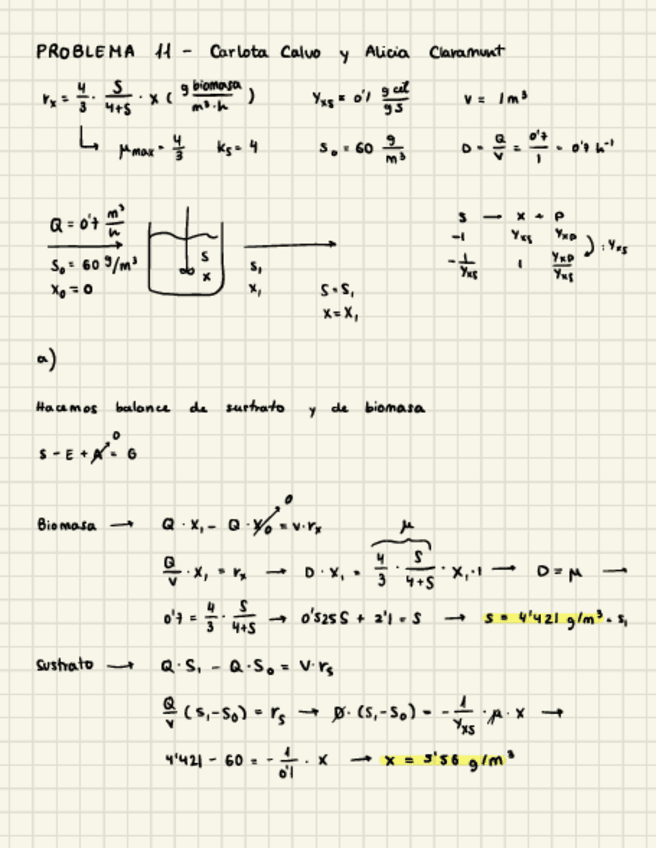 PROBLEMA 11 - Carlota Calvo y Alicia Claramunt
rx = 4/3 · S/4+S · x ( g biomasa / m³·h )   Yxs = 0'1 g cel / g S   V = 1 m³
↳ μmax = 4/3   ks = 4   S₀ = 60 g/m³   D = Q/V = 0'7/1 = 0'7 h⁻¹
Q = 0'7 m³/h
S₀ = 60 g/m³
X₀ = 0
S
X
S₁
X₁
S = S₁
X = X₁
S → X + P
-1   Yxs   Yxp
-1/Yxs   1   Yxp/Yxs   : Yxs
a)
Hacemos balance de sustrato y de biomasa
S - E + A⁰ = G
Biomasa → Q · X₁ - Q · X₀⁰ = V · rx
Q/V · X₁ = rx → D · X₁ = 4/3 · S/4+S · X₁ · 1 → D = μ →
μ
0'7 = 4/3 · S/4+S → 0'525 S + 2'1 = S → S = 4'421 g/m³ = S₁
Sustrato → Q · S₁ - Q · S₀ = V · rs
Q/V (S₁ - S₀) = rs → D · (S₁ - S₀) = - 1/Yxs · μ · X →
4'421 - 60 = - 1/0'1 · X → X = 5'56 g/m³